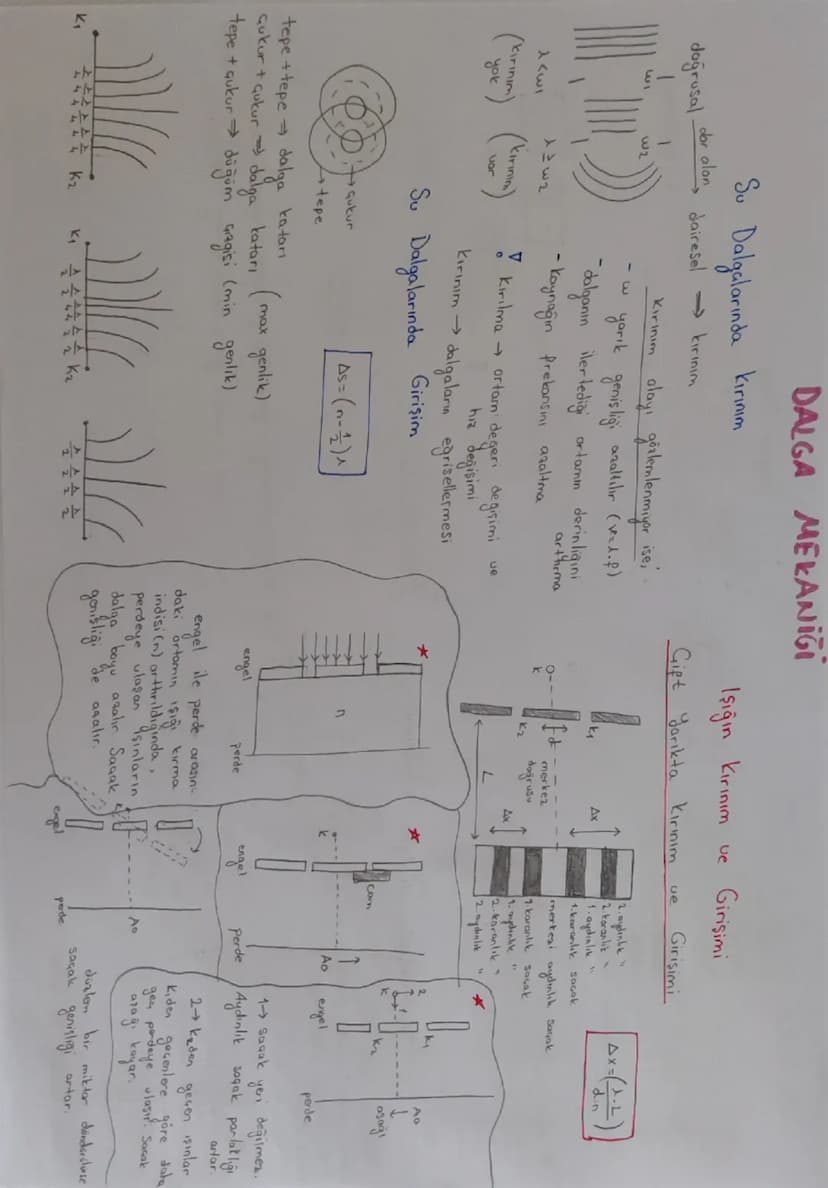 DALGA MEKANİĞİ
Su Dalgalarında Kırınım
doğrusal dar alan → dairesel → kırınım
w1
w2
λ<w1
(kırınım yok)
λ≥w2
(kırınım var)
kırınım olayı gözlemlenmiyor ise;
- w yarık genişliği azaltılır (v=λ.f)
- dalganın ilerlediği ortamın derinliğini arttırma
- kaynağın frekansını azaltma
kırılma → ortam değeri değişimi ve
hız değişimi
kırınım → dalgaların eğriselleşmesi
Su Dalgalarında Girişim
çukur
tepe
Δs=(n-1/2)λ
tepe+tepe ⇒ dalga katarı
çukur+çukur ⇒ dalga katarı (max genlik)
tepe+çukur ⇒ düğüm çizgisi (min genlik)
K1 λ/4 λ/4 λ/4 λ/4 λ/4 λ/4 K2
K1 λ/2 λ/2 λ/2 λ/2 λ/2 K2
λ/2 λ/2 λ/2 λ/2
Işığın Kırınım ve Girişimi
Çift Yarıkta Kırınım ve Girişimi
Δx=(λ.L/d.n)
k1
k2
k
d
merkez doğrusu
L
Δx
Δx
2.aydınlık "
2.karanlık "
1.aydınlık "
1.karanlık saçak
merkezi aydınlık saçak
1.karanlık saçak
1.aydınlık "
2.karanlık "
2.aydınlık "
engel
n
perde
engel ile perde arasın-
daki ortamın ışığı kırma
indisi(n) arttırıldığında,
perdeye ulaşan ışınların
dalga boyu azalır. Saçak
genişliği de azalır.
k
cam
A0
engel
perde
k1
k2
k
1
2
A0
aşağı
engel
perde
1→ saçak yeri değişmez.
Aydınlık saçak parlaklığı
artar.
2→ k2den geçen ışınlar
k1den geçenlere göre daha
geç perdeye ulaşır. Saçak
aşağı kayar.
engel
A0
perde
düzlem bir miktar döndürülürse
saçak genişliği artar.